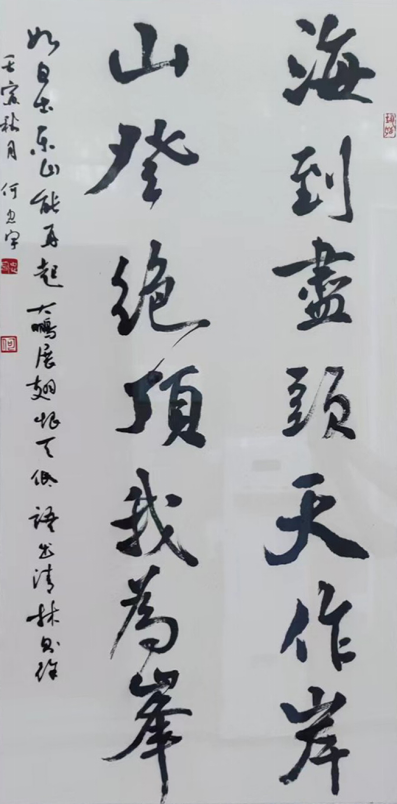 海到盡頭天作岸
山登絶頂我為峯
如日出東山能再起大鵬展翅恨天低語出清林則徐
壬寅秋月何忠宇